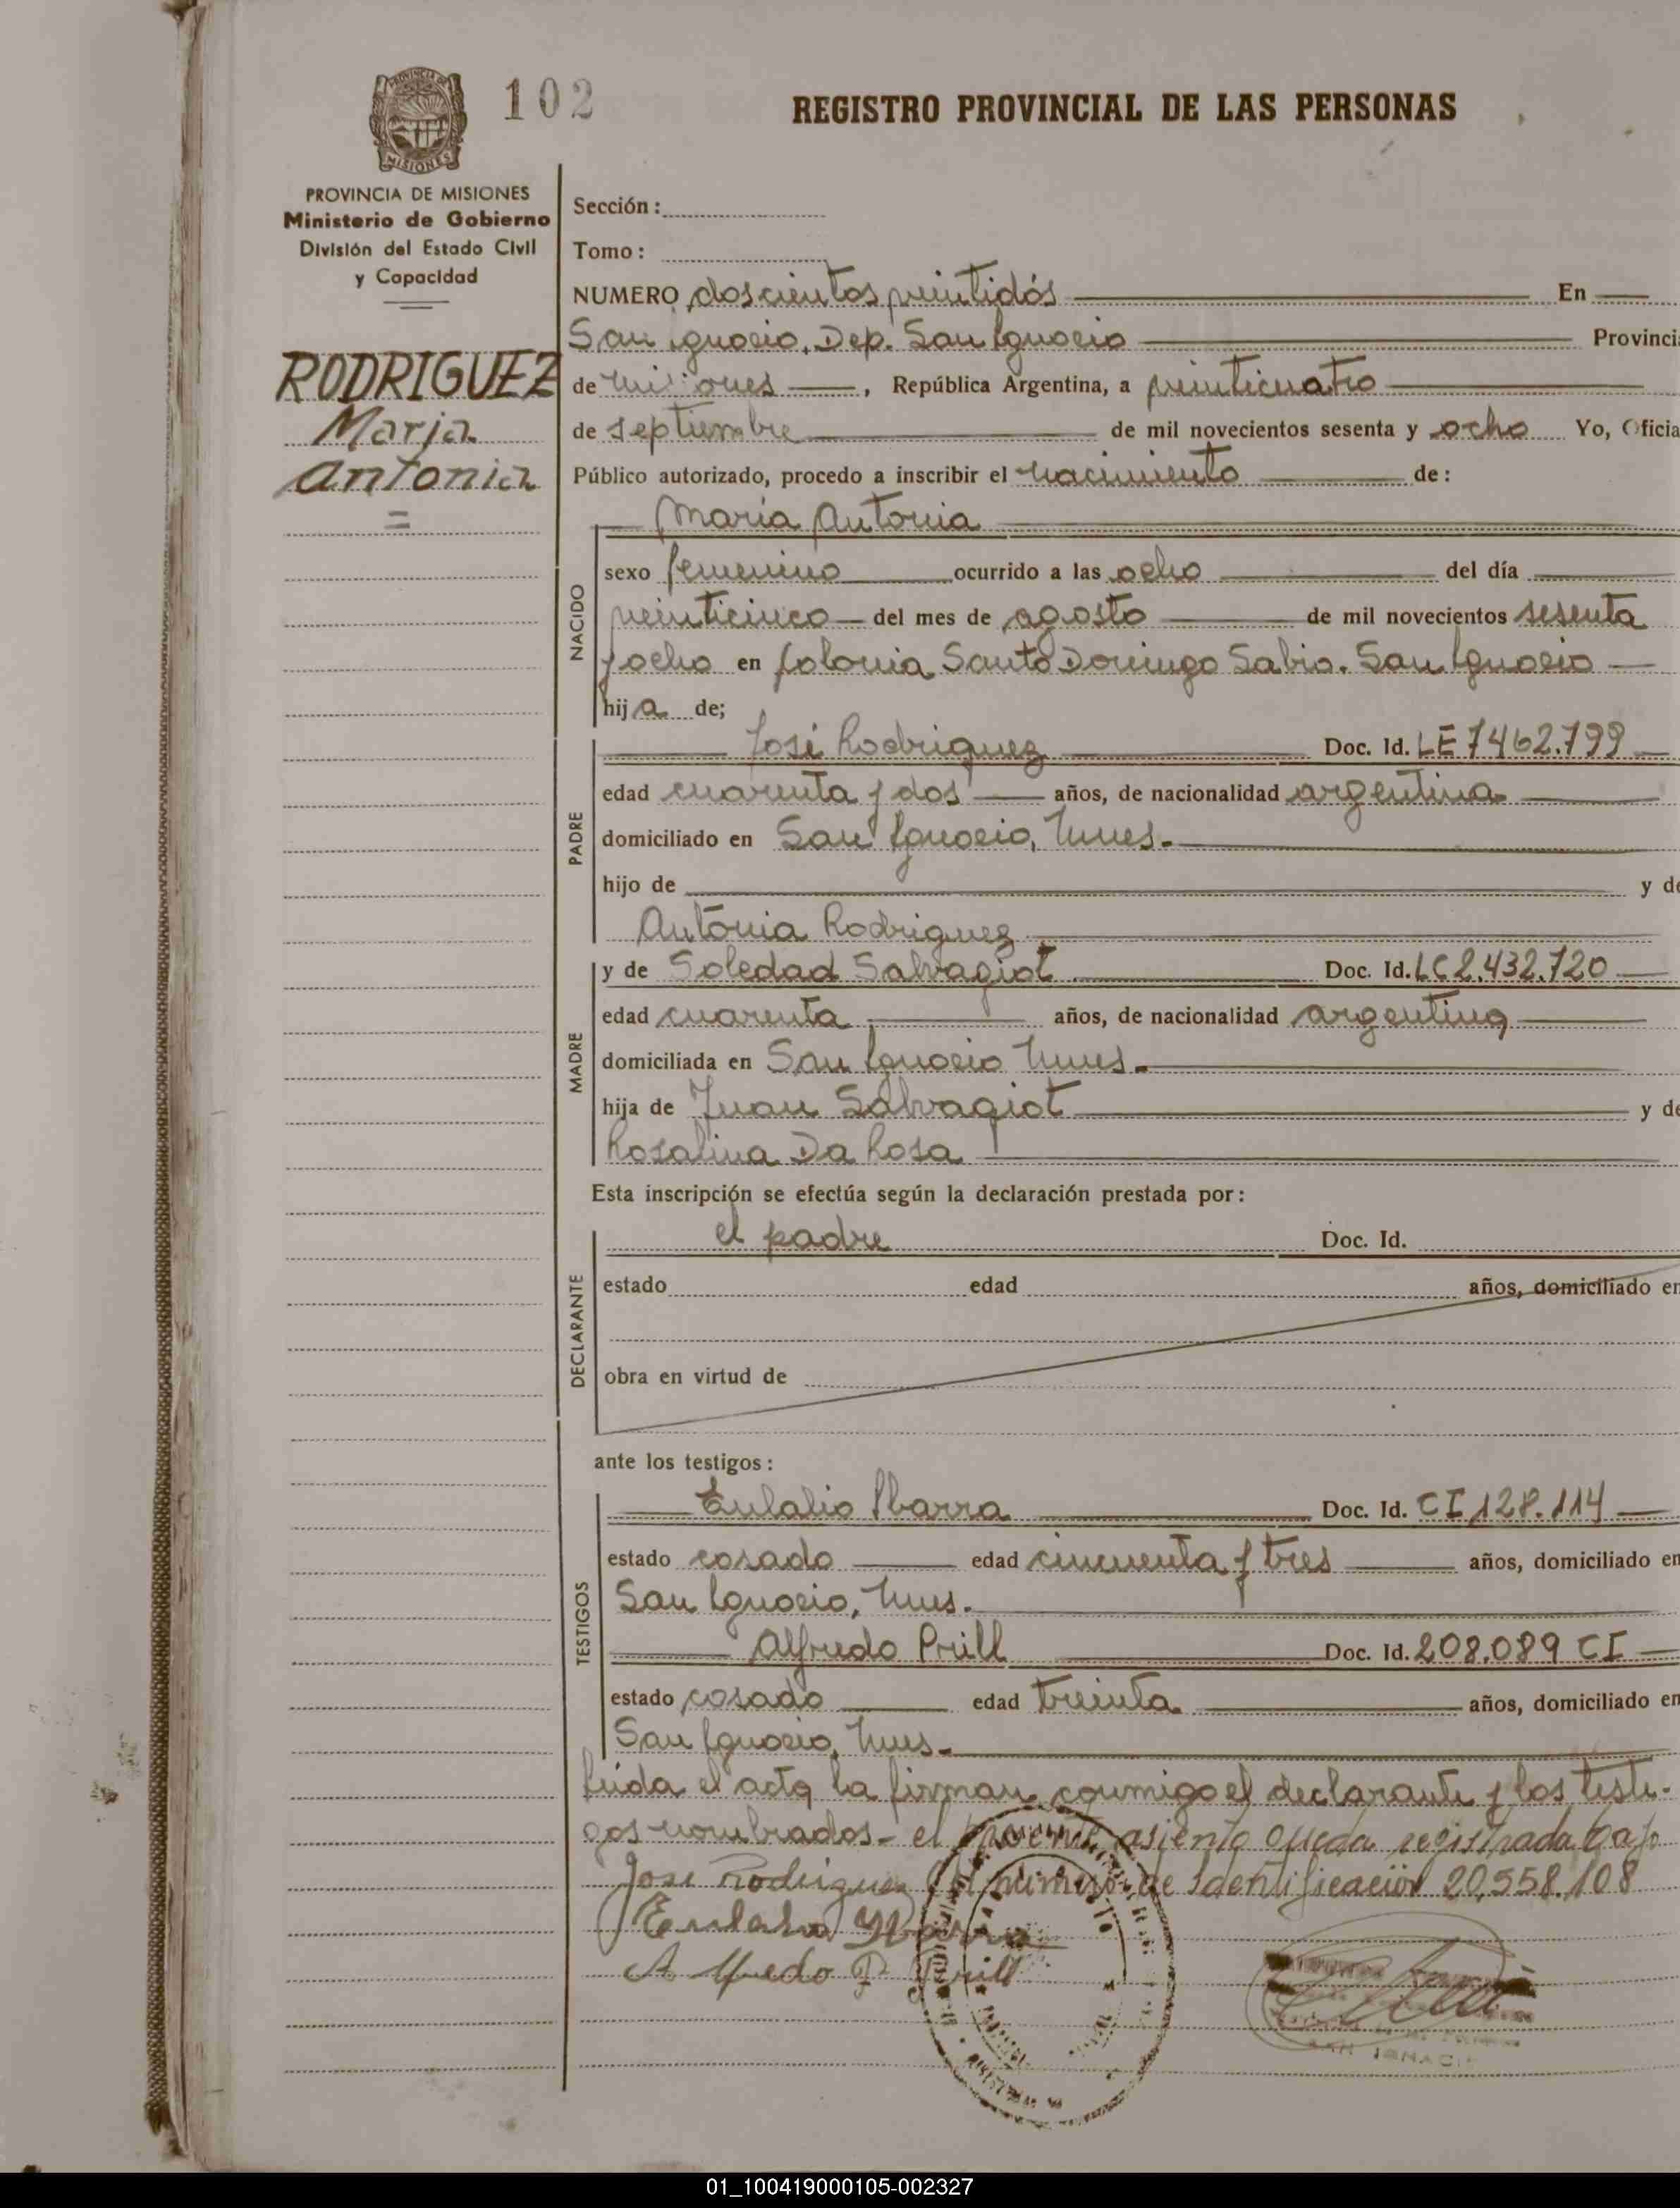 PROVINCIA DE
MISIONES
102
REGISTRO PROVINCIAL DE LAS PERSONAS
PROVINCIA DE MISIONES
Ministerio de Gobierno
División del Estado Civil
y Capacidad
RODRIGUEZ
Maria
Antonia
=
Sección:
Tomo:
NUMERO doscientos veintidós En
San ignacio, Dep. San Ignacio Provinci
de misiones, República Argentina, a veinticuatro
de septiembre de mil novecientos sesenta y ocho Yo, Oficia
Público autorizado, procedo a inscribir el nacimiento de:
NACIDO
María Antonia
sexo femenino ocurrido a las ocho del día
veinticinco del mes de agosto de mil novecientos sesenta
y ocho en Colonia Santo Domingo Sabio. San Ignacio
hij a de;
PADRE
José Rodriguez Doc. Id. LE 7462.799
edad cuarenta y dos años, de nacionalidad argentina
domiciliado en San Ignacio, Mnes.
hijo de y de
Antonia Rodriguez
MADRE
y de Soledad Salvagiot Doc. Id. LC 2.432.720
edad cuarenta años, de nacionalidad argentina
domiciliada en San Ignacio Mnes.
hija de Juan Salvagiot y de
Rosalina Da Rosa
Esta inscripción se efectúa según la declaración prestada por:
DECLARANTE
el padre Doc. Id.
estado edad años, domiciliado en
obra en virtud de
ante los testigos:
TESTIGOS
Eulalio Ibarra Doc. Id. CI 128.114
estado casado edad cincuenta y tres años, domiciliado en
San Ignacio, Mnes.
Alfredo Prill Doc. Id. 208.089 CI
estado casado edad treinta años, domiciliado en
San Ignacio, Mnes.
Leida el acta la firman conmigo el declarante y los testi-
gos nombrados- el presente asiento queda registrada bajo
Jose Rodriguez el número de Identificación 20.558.108
Eulalio Ybarra
Alfredo P Prill
SAN IGNACIO
01_100419000105-002327